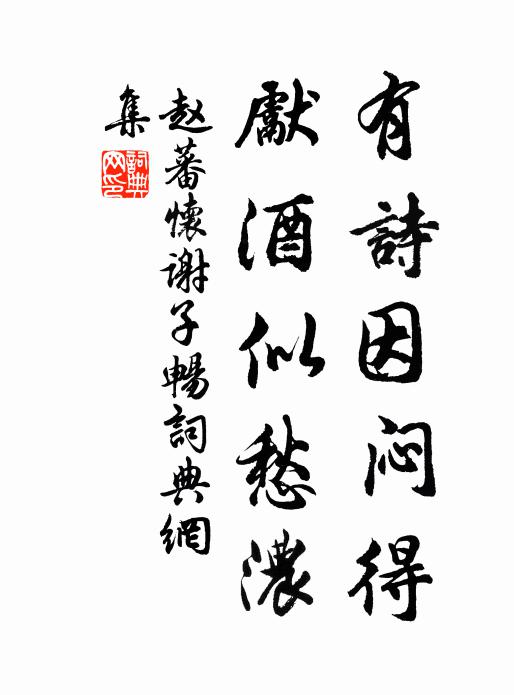 有詩因闷得
獻酒似愁濃
赵蕃懷谢子暢詞典網
集
詞典网印